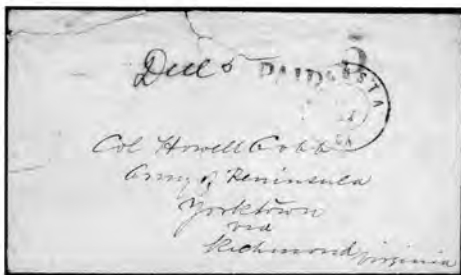 Due 5 PAID 5
Col Howell Cobb
Army of Peninsula
Yorktown
via
Richmond Virginia